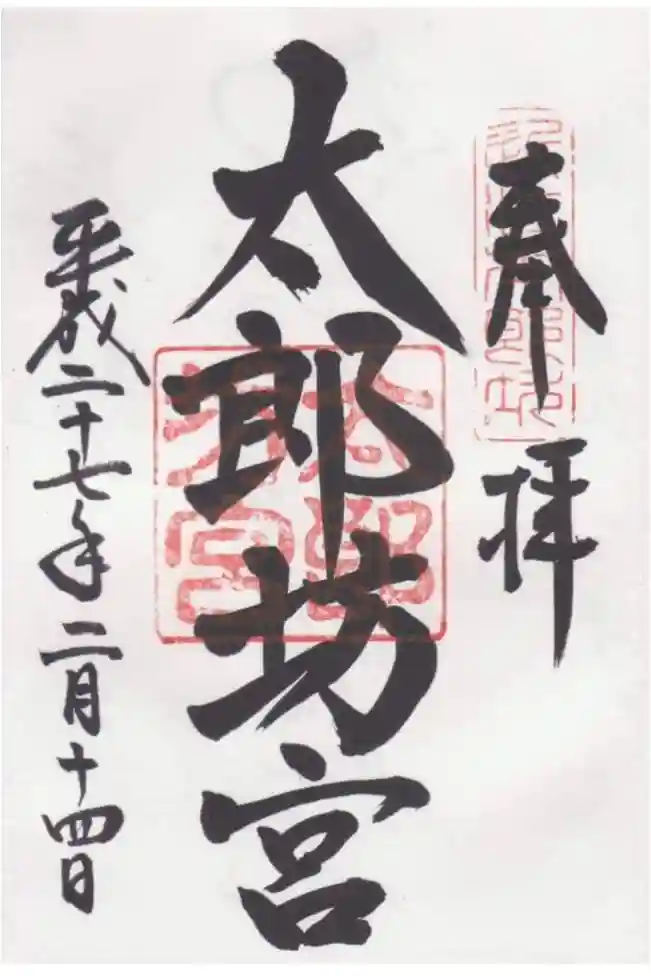 奉拝
太郎坊宮
平成二十七年二月十四日
太郎坊宮